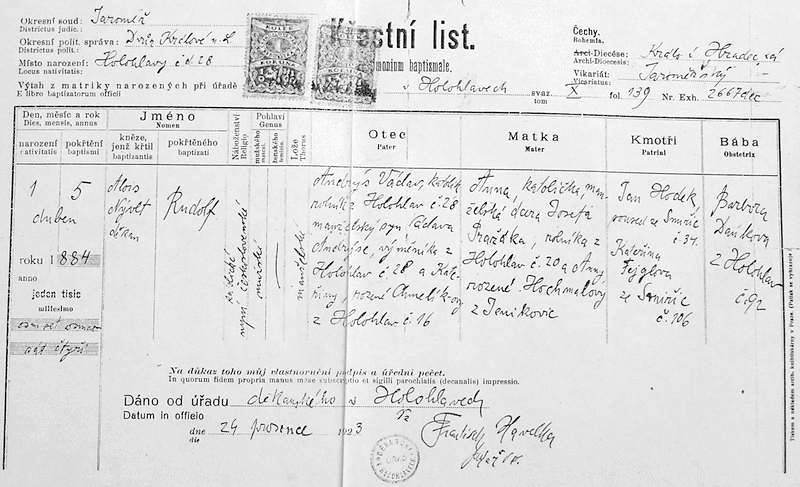 Okresní soud: Jaroměř
Districtus judic.:
Okresní polit. správa: Dvůr Králové n. L
Districtus polit.:
Místo narození: Holohlavy č. 28
Locus nativitatis:
Výtah z matriky narozených při úřadě
E libro baptizatorum officii
Křestní list.
Testimonium baptismale.
v Holohlavech
svaz. X
tom
fol. 139 Nr. Exh. 2667
Čechy.
Bohemia.
Arci-Diecése: Králo
Archi-Dioecesis:
Vikariát: Jaroměřský
Vicariatus:
Den, měsíc a rok
Dies, mensis, annus
narození
nativitatis
pokřtění
baptismi
Jméno
Nomen
kněze, jenž křtil
baptisantis
pokřtěného
baptizati
Náboženství
Religio
Pohlaví
Genus
mužského
mascul.
ženského
feminin.
Lože
Thorus
Otec
Pater
Matka
Mater
Kmotři
Patrini
Bába
Obstetrix
1 5
duben
roku 1884
anno
jeden tisíc
millesimo
osm set osmde
sát čtyři
Alois
Nývlt
děkan
Rudolf
katolické
nyní československé
mužské
manželské
Andrýs Václav, katolík
rolník z Holohlav č. 28
manželský syn Václava
Andrýse, výměníka z
Holohlav č. 28 a Kate-
řiny, rozené
z Holohlav č. 16
Anna, katolička, man-
želská dcera Josefa
Pražáka, rolníka z
Holohlav č. 20 a Anny
rozené Hochmalový
z Jeníkovic
Jan Hodek,
soused ze Smiřic
č. 34.
Kateřina
Fejglova
ze Smiřic
č. 106
Barbora
Daňkova
z Holohlav
č. 92
Na důkaz toho můj vlastnoruční podpis a úřední pečeť.
In quorum fidem propria manus meae subscriptio et sigilli parochialis (decanalis) impressio.
Dáno od úřadu děkanského v Holohlavech
Datum in officio
dne 24 prosence 1923
die
František Havelka